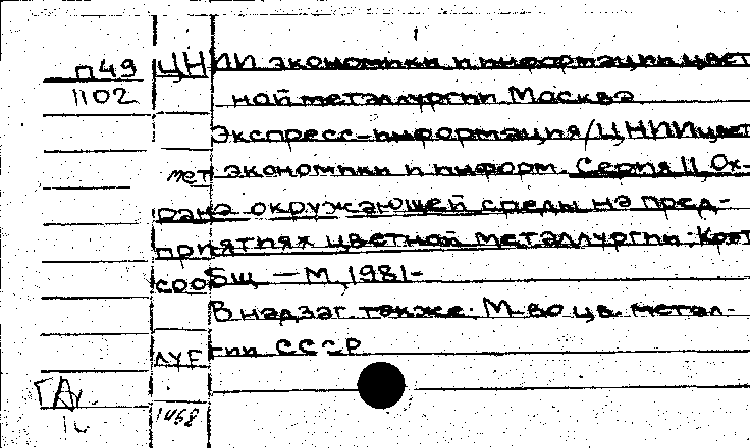 п49
1102
ЦНИИ экономики и информации цвет
ной металлургии Москва
Экспресс-информация/ЦНИИцвет
мет экономики и информ. Серия II, Ох-
рана окружающей среды на пред-
приятиях цветной металлургии: Крат
сообщ — М, 1981-
В надзаг. также: М-во цв. метал-
лургии СССР
1468